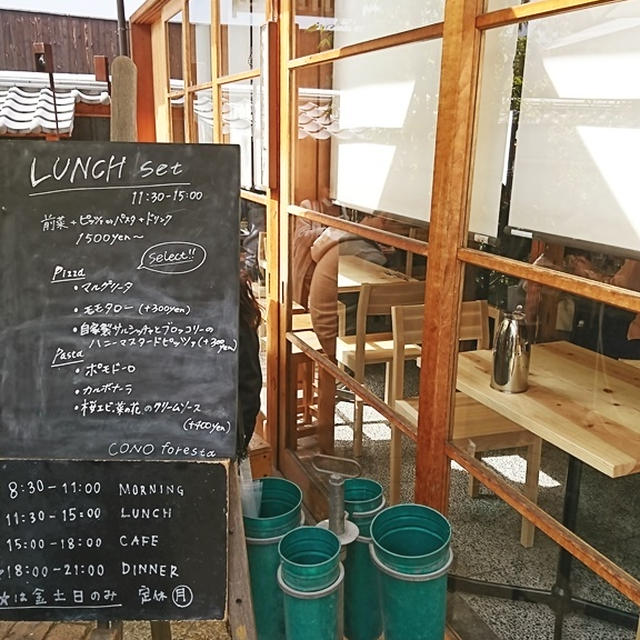 LUNCH set
11:30-15:00
前菜+ピッツァorパスタ+ドリンク
1500yen〜
select!!
Pizza
・マルゲリータ
・モモタロー(+300yen)
・自家製サルシッチャとブロッコリーの
ハニーマスタードピッツァ(+300yen)
Pasta
・ポモドーロ
・カルボナーラ
・桜エビと菜の花のクリームソース
(+400yen)
CONO foresta
8:30-11:00 MORNING
11:30-15:00 LUNCH
15:00-18:00 CAFE
18:00-21:00 DINNER
★は金土日のみ 定休月